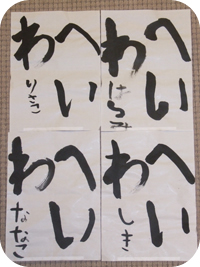 へい
わ
りさき
へい
わ
はるみ
へい
わ
ななこ
へい
わ
しき